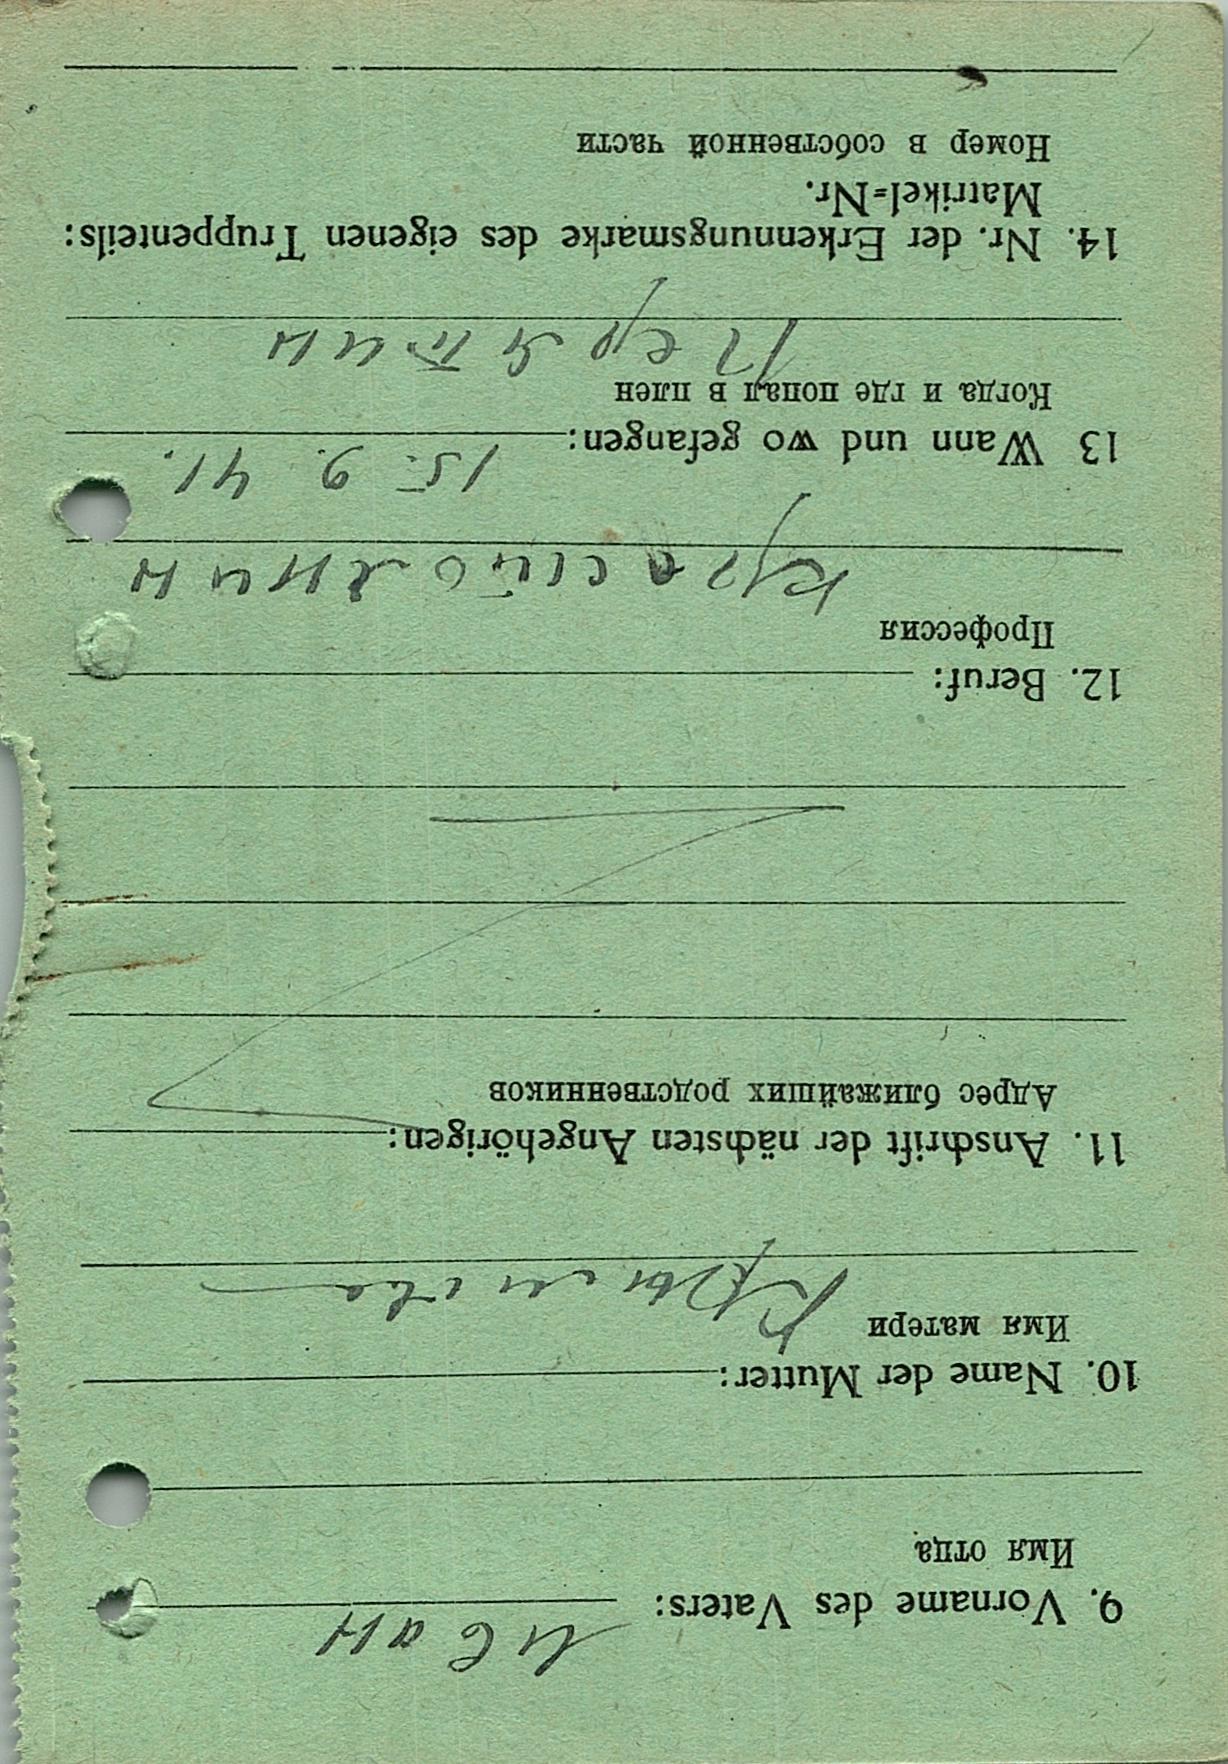 9. Vorname des Vaters: Иван
Имя отца
10. Name der Mutter:
Имя матери
11. Anschrift der nächsten Angehörigen:
Адрес ближайших родственников
12. Beruf:
Профессия
13 Wann und wo gefangen: 15. 9. 41.
Когда и где попал в плен
Перятин
14. Nr. der Erkennungsmarke des eigenen Truppenteils:
Matrikel=Nr.
Номер в собственной части